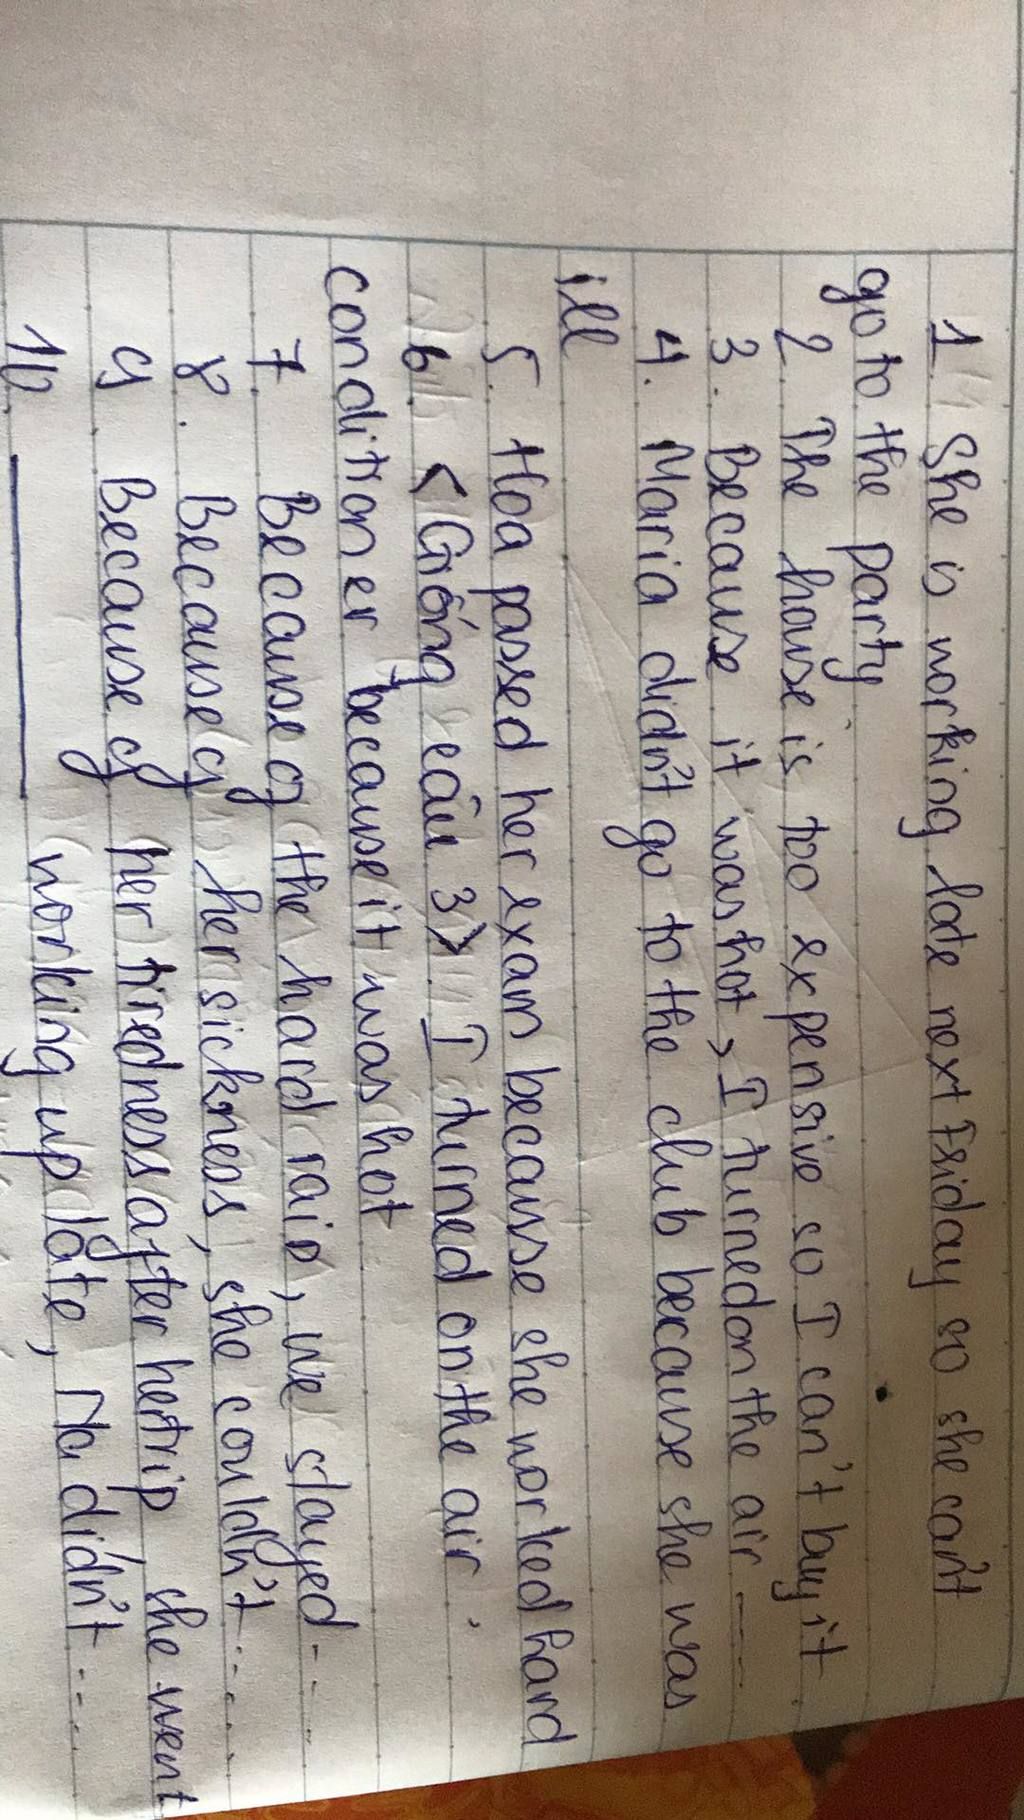 1. She is working late next Friday so she can't
go to the party
2. The house is too expensive so I can't buy it.
3. Because it was hot, I turned on the air ----
4. Maria didn't go to the club because she was
ill
5. Hoa passed her exam because she worked hard
6. <Giống câu 3>. I turned on the air.
conditioner because it was hot
7. Because of the hard rain, we stayed....
8. Because of her sickness, she couldn't.....
9. Because of her tiredness after her trip, she went
10. working up late, Na didn't....